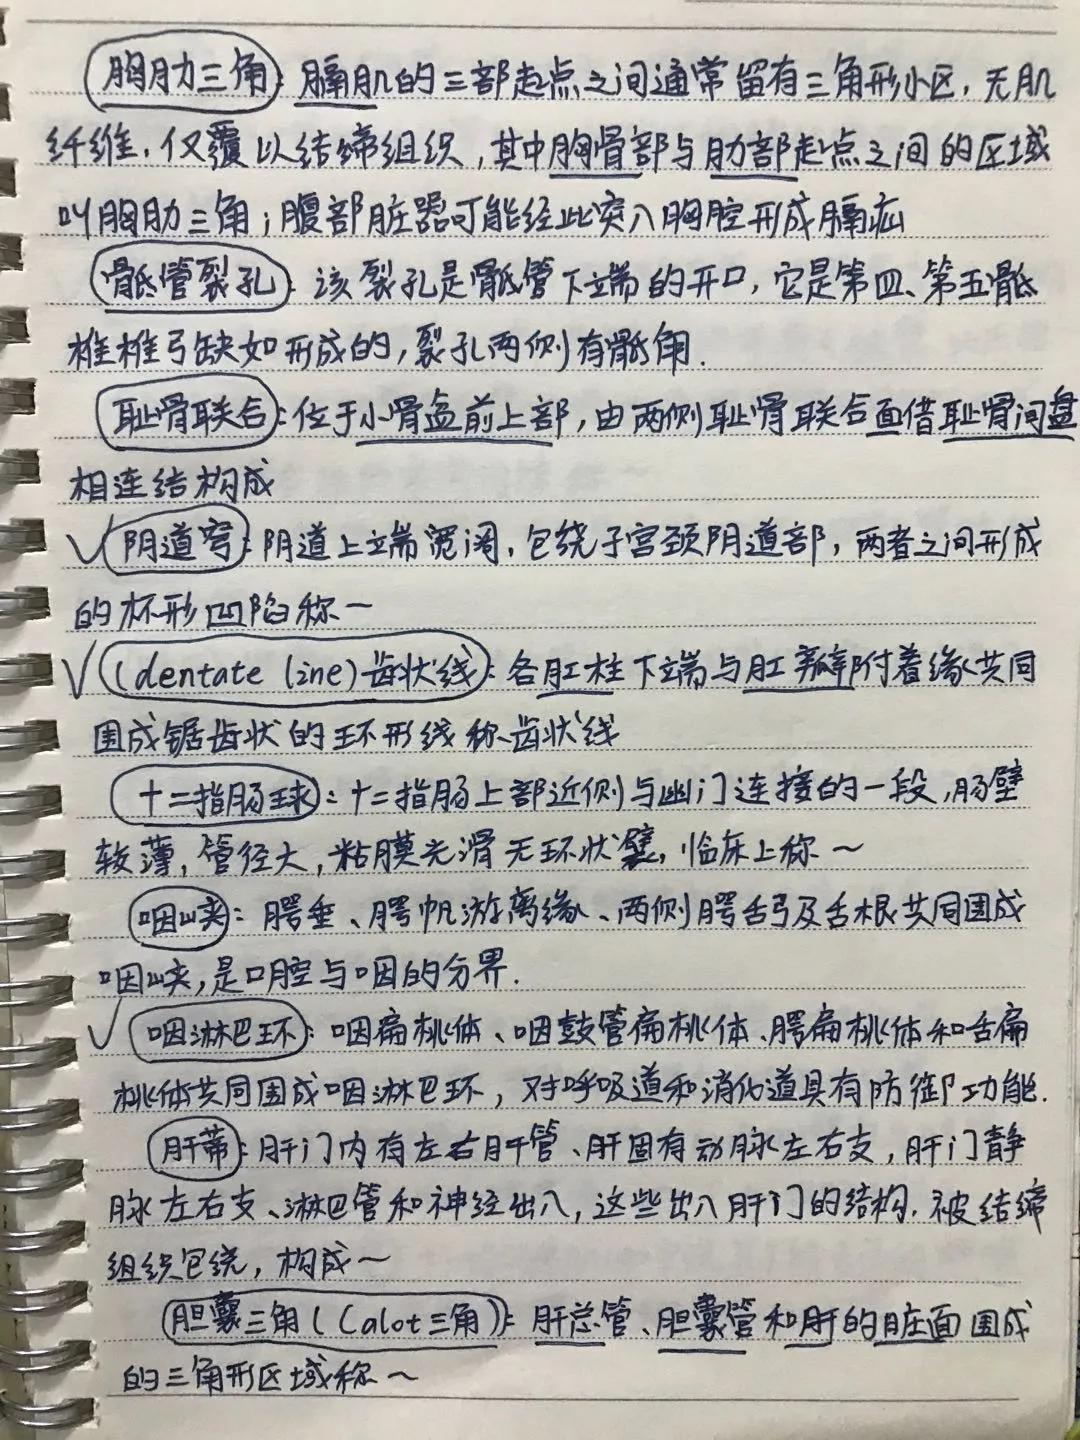 胸肋三角：膈肌的三部起点之间通常留有三角形小区，无肌
纤维，仅覆以结缔组织，其中胸骨部与肋部起点之间的区域
叫胸肋三角；腹部脏器可能经此突入胸腔形成膈疝
骶管裂孔：该裂孔是骶管下端的开口，它是第四、第五骶
椎椎弓缺如形成的，裂孔两侧有骶角.
耻骨联合：位于小骨盆前上部，由两侧耻骨联合面借耻骨间盘
相连结构成
✓阴道穹：阴道上端宽阔，包绕子宫颈阴道部，两者之间形成
的杯形凹陷称～
✓(dentate line)齿状线：各肛柱下端与肛瓣附着缘共同
围成锯齿状的环形线称齿状线
十二指肠球：十二指肠上部近侧与幽门连接的一段，肠壁
较薄，管径大，粘膜光滑无环状襞，临床上称～
咽峡：腭垂、腭帆游离缘、两侧腭舌弓及舌根共同围成
咽峡，是口腔与咽的分界.
✓咽淋巴环：咽扁桃体、咽鼓管扁桃体、腭扁桃体和舌扁
桃体共同围成咽淋巴环，对呼吸道和消化道具有防御功能.
肝蒂：肝门内有左右肝管、肝固有动脉左右支，肝门静
脉左右支、淋巴管和神经出入，这些出入肝门的结构，被结缔
组织包绕，构成～
胆囊三角(Calot三角)：肝总管、胆囊管和肝的脏面围成
的三角形区域称～